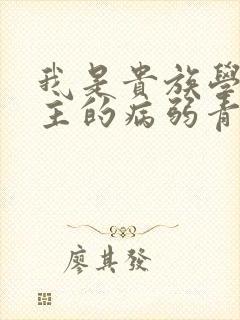 我是貴族學
主的病弱青
廖其發